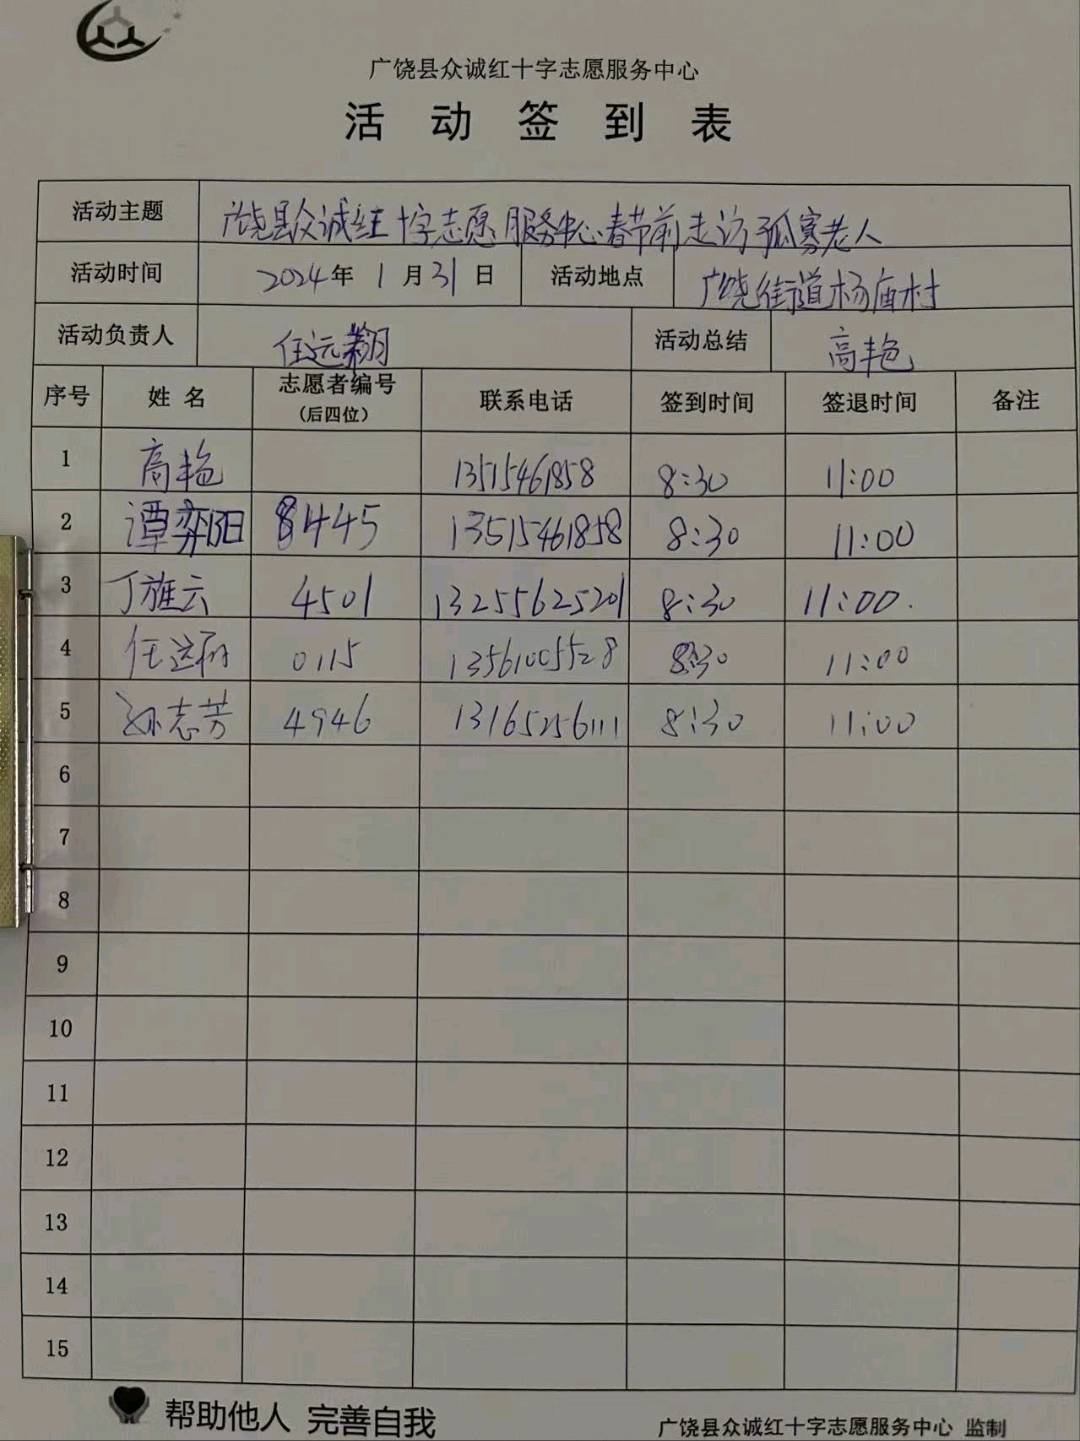 广饶县众诚红十字志愿服务中心
活 动 签 到 表
活动主题 广饶县众诚红十字志愿服务中心春节前走访孤寡老人
活动时间 2024年 1 月 31 日 活动地点 广饶街道杨庙村
活动负责人 任远翔 活动总结 高艳
序号 姓 名 志愿者编号 (后四位) 联系电话 签到时间 签退时间 备注
1 高艳 13515461858 8:30 11:00
2 谭弈阳 8445 13515461858 8:30 11:00
3 丁旌云 4501 13255625201 8:30 11:00.
4 任远翔 0115 13561005528 8:30 11:00
5 孙志芳 4946 13165256111 8:30 11:00
6
7
8
9
10
11
12
13
14
15
帮助他人 完善自我
广饶县众诚红十字志愿服务中心 监制